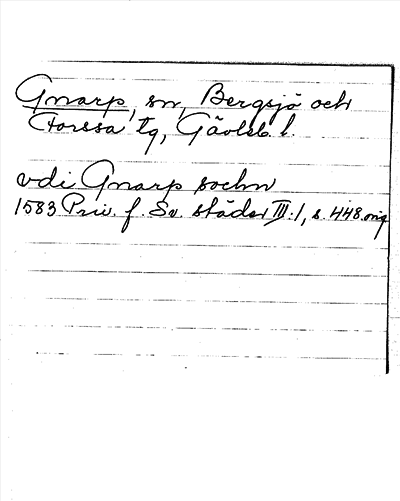 Gnarp, sn, Bergsjö och
Forssa tg, Gävleb. l.
vdi Gnarp sochn
1583 Priv. f. Sv. städer III:1, s. 448. orig